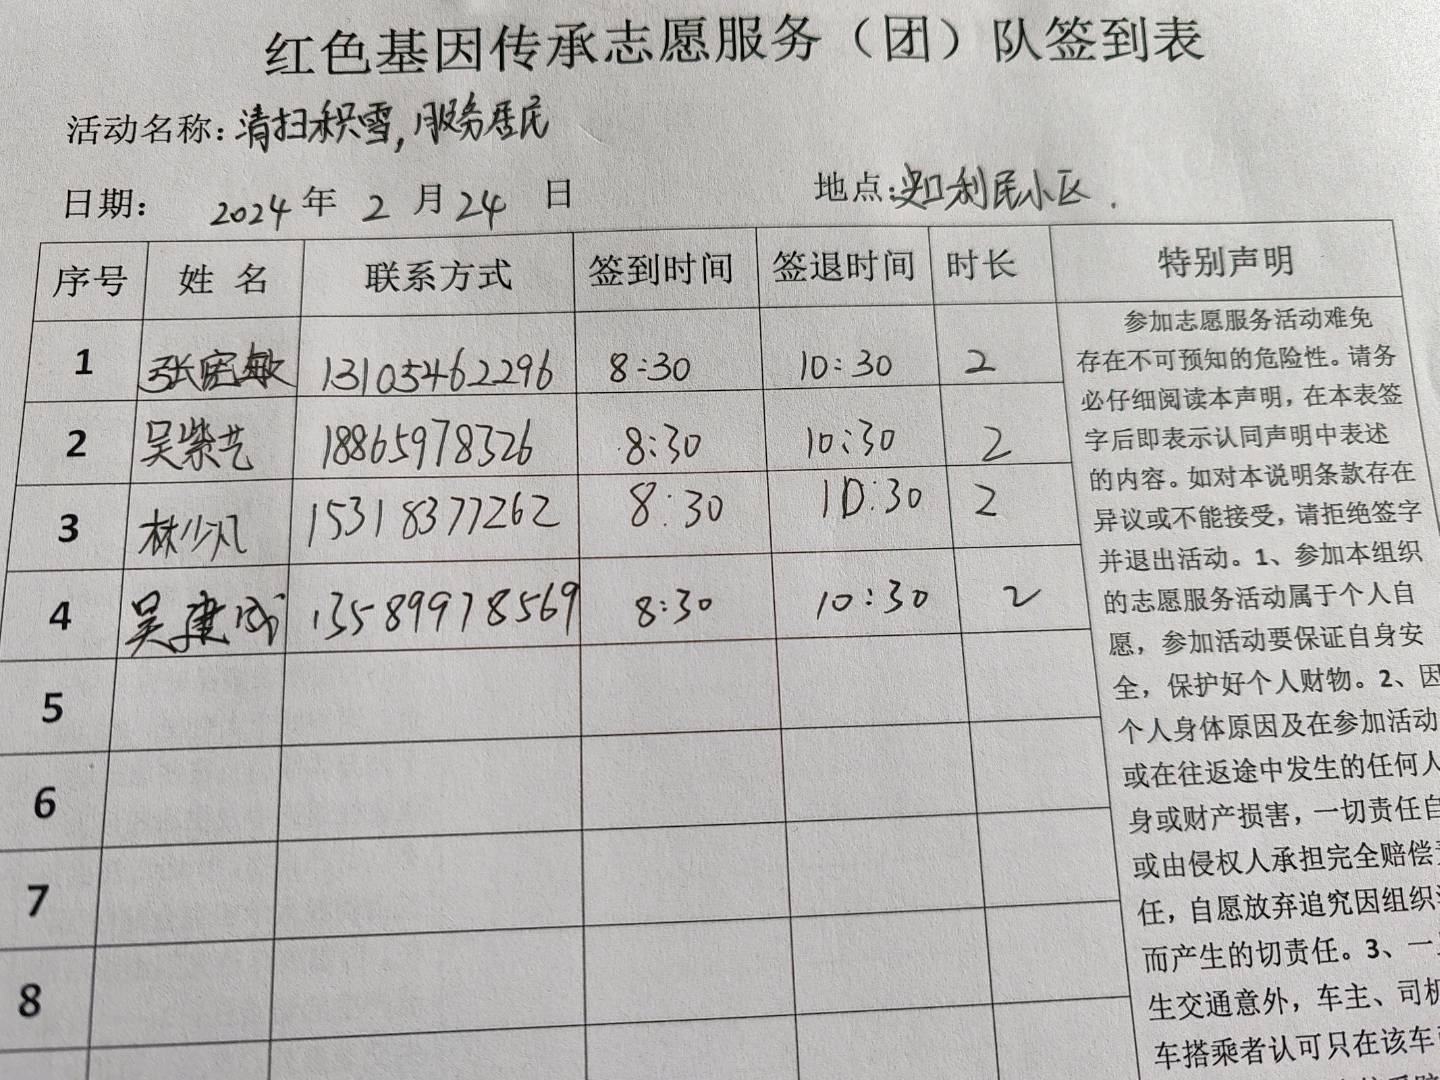 红色基因传承志愿服务（团）队签到表
活动名称：清扫积雪，服务居民
日期： 2024 年 2 月 24 日 地点：利民小区．
序号 姓 名 联系方式 签到时间 签退时间 时长 特别声明
1 张宪敏 13105462296 8:30 10:30 2
2 吴紫艺 18865978326 8:30 10:30 2
3 林少凡 15318377262 8:30 10:30 2
4 吴建成 13589978569 8:30 10:30 2
5
6
7
8
参加志愿服务活动难免
存在不可预知的危险性。请务
必仔细阅读本声明，在本表签
字后即表示认同声明中表述
的内容。如对本说明条款存在
异议或不能接受，请拒绝签字
并退出活动。1、参加本组织
的志愿服务活动属于个人自
愿，参加活动要保证自身安
全，保护好个人财物。2、因
个人身体原因及在参加活动
或在往返途中发生的任何人
身或财产损害，一切责任自
或由侵权人承担完全赔偿
任，自愿放弃追究因组织
而产生的切责任。3、一
生交通意外，车主、司机
车搭乘者认可只在该车